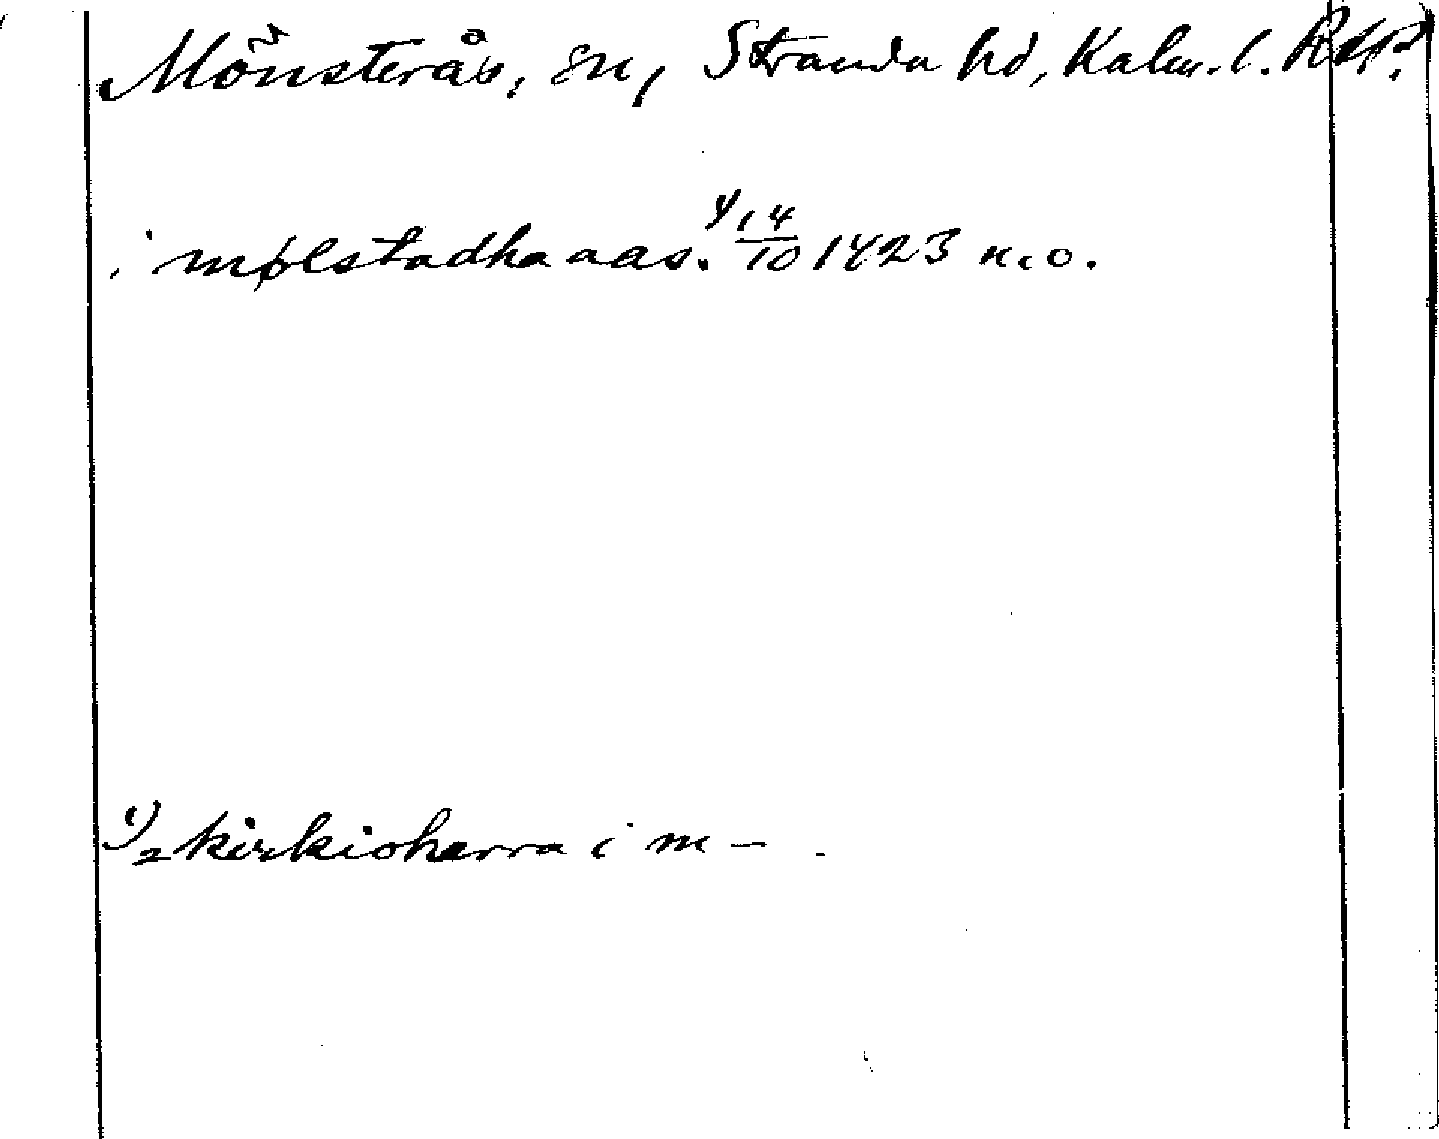 Mönsterås, sn, Stranda hd, Kalm. l. RAP.
i mølstadhaaas.¹⁾ 14/10 1423 n.o.
¹⁾ kirkioherra i m – .